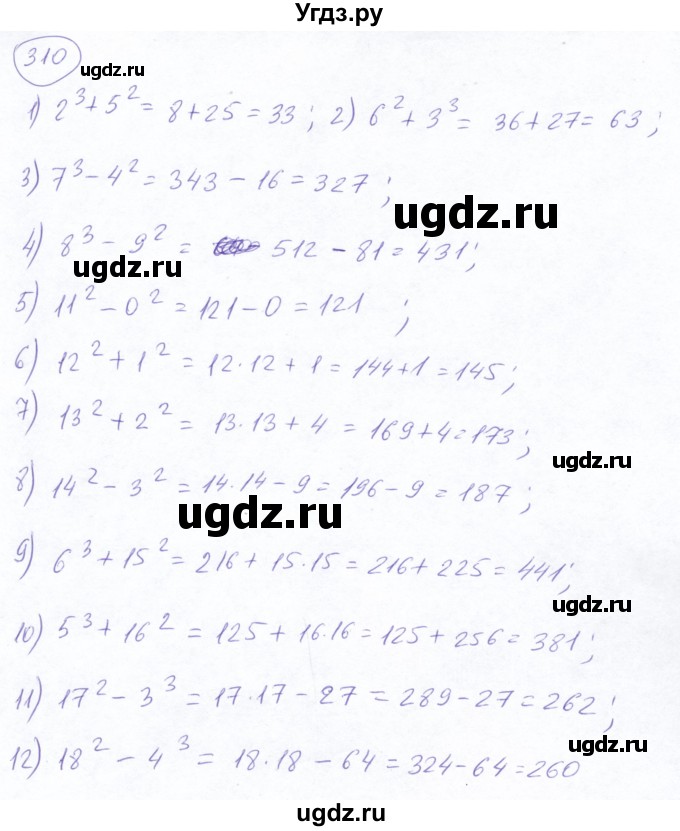 Угдз.ру
310
ugdz.ru
1) 2³+5² = 8+25 = 33 ; 2) 6²+3³ = 36+27 = 63 ;
3) 7³-4² = 343-16 = 327 ;
ugdz.ru
4) 8³-9² = 512-81 = 431 ;
ugdz.ru
5) 11²-0² = 121-0 = 121 ;
6) 12²+1² = 12·12+1 = 144+1 = 145 ;
7) 13²+2² = 13·13+4 = 169+4 = 173 ;
ugdz.ru
8) 14²-3² = 14·14-9 = 196-9 = 187 ;
ugdz.ru
9) 6³+15² = 216+15·15 = 216+225 = 441 ;
ugdz.ru
10) 5³+16² = 125+16·16 = 125+256 = 381 ;
11) 17²-3³ = 17·17-27 = 289-27 = 262 ;
ugdz.ru
12) 18²-4³ = 18·18-64 = 324-64 = 260
ugdz.ru